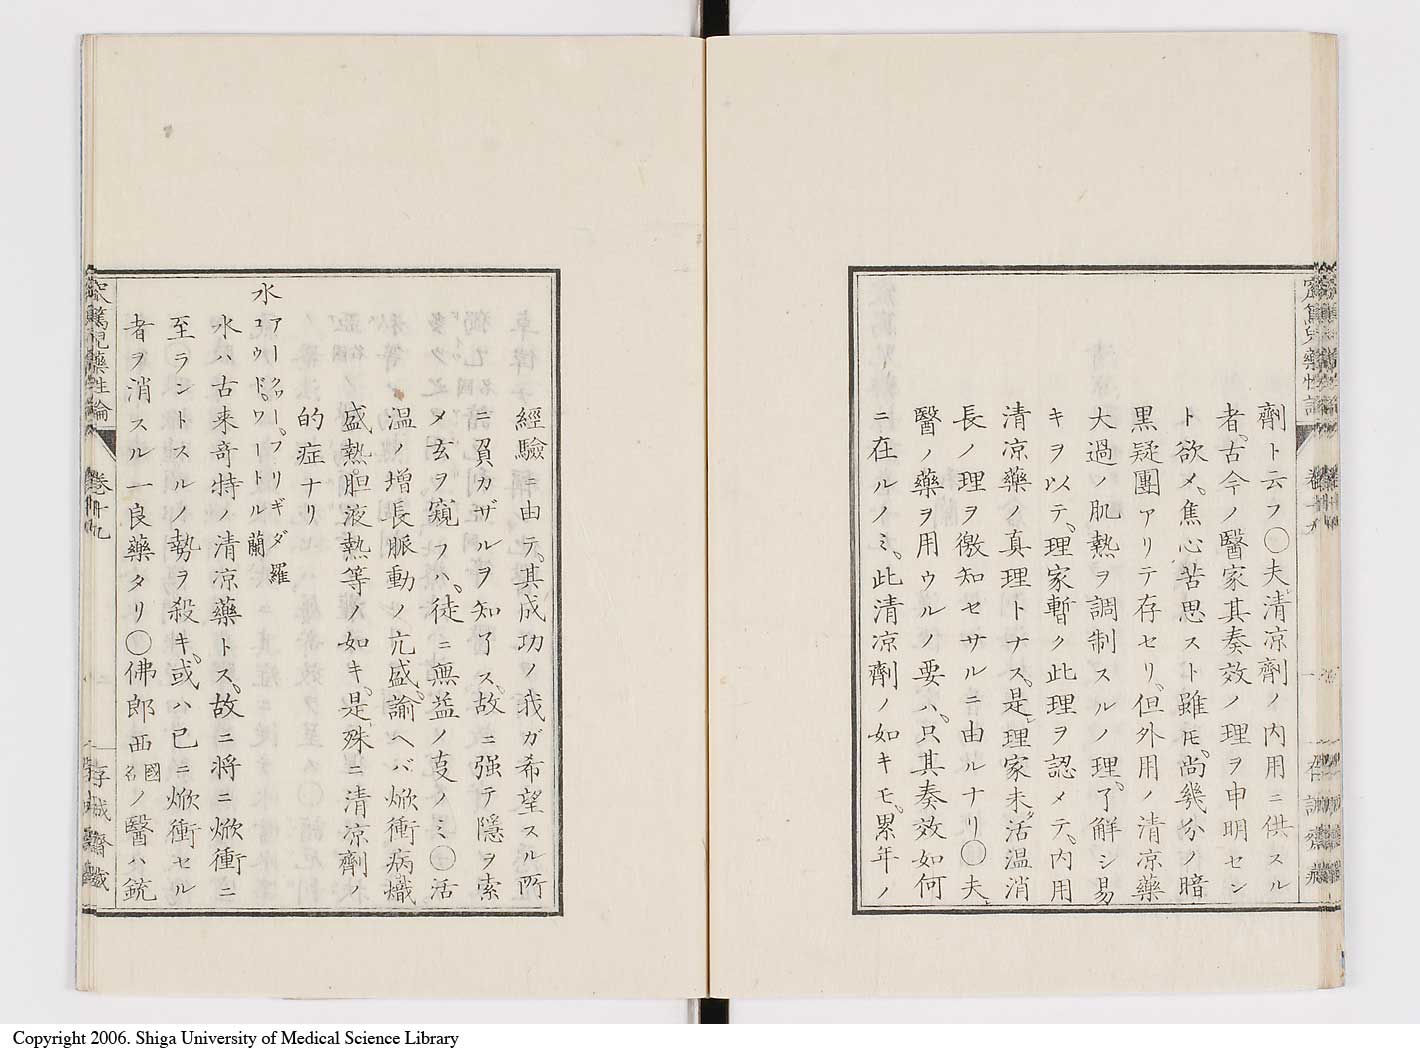 劑ト云フ〇夫清凉劑ノ内用ニ供スル
者、古今ノ醫家其奏效ノ理ヲ申明セン
ト欲メ、焦心苦思スト雖𪜈、尚幾分ノ暗
黒疑團アリテ存セリ、但外用ノ清凉藥
大過ノ肌熱ヲ調制スルノ理、了解シ易
キヲ以テ、理家暫ク此理ヲ認メテ、内用
清凉藥ノ真理トナス、是理家未活温消
長ノ理ヲ徴知セサルニ由ルナリ〇夫
醫ノ藥ヲ用ウルノ要ハ、只其奏效如何
ニ在ルノミ、此清凉劑ノ如キモ、累年ノ
經驗ニ由テ、其成功ノ我ガ希望スル所
ニ負カザルヲ知了ス、故ニ强テ隱ヲ索
メ玄ヲ窺フハ、徒ニ無益ノ叓ノミ〇活
温ノ增長脈動ノ亢盛、諭ヘバ焮衝病熾
盛熱胆液熱等ノ如キ、是殊ニ清凉劑ノ
的症ナリ
水 アークワー、フリギダ 羅
ユウド、ワートル 蘭
水ハ古来奇特ノ清凉藥トス、故ニ将ニ焮衝ニ
至ラントスルノ勢ヲ殺キ、或ハ已ニ焮衝セル
者ヲ消スル一良藥タリ〇佛郎西國名ノ醫ハ銃
窊篤兒藥性論 卷十九